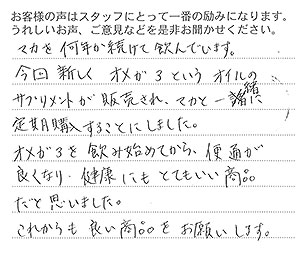 お客様の声はスタッフにとって一番の励みになります。
うれしいお声、ご意見などを是非お聞かせください。
マカを何年か続けて飲んでいます。
今回新しくオメガ3というオイルの
サプリメントが販売され、マカと一緒に
定期購入することにしました。
オメガ3を飲み始めてから、便通が
良くなり、健康にもとてもいい商品
だと思いました。
これからも良い商品をお願いします。